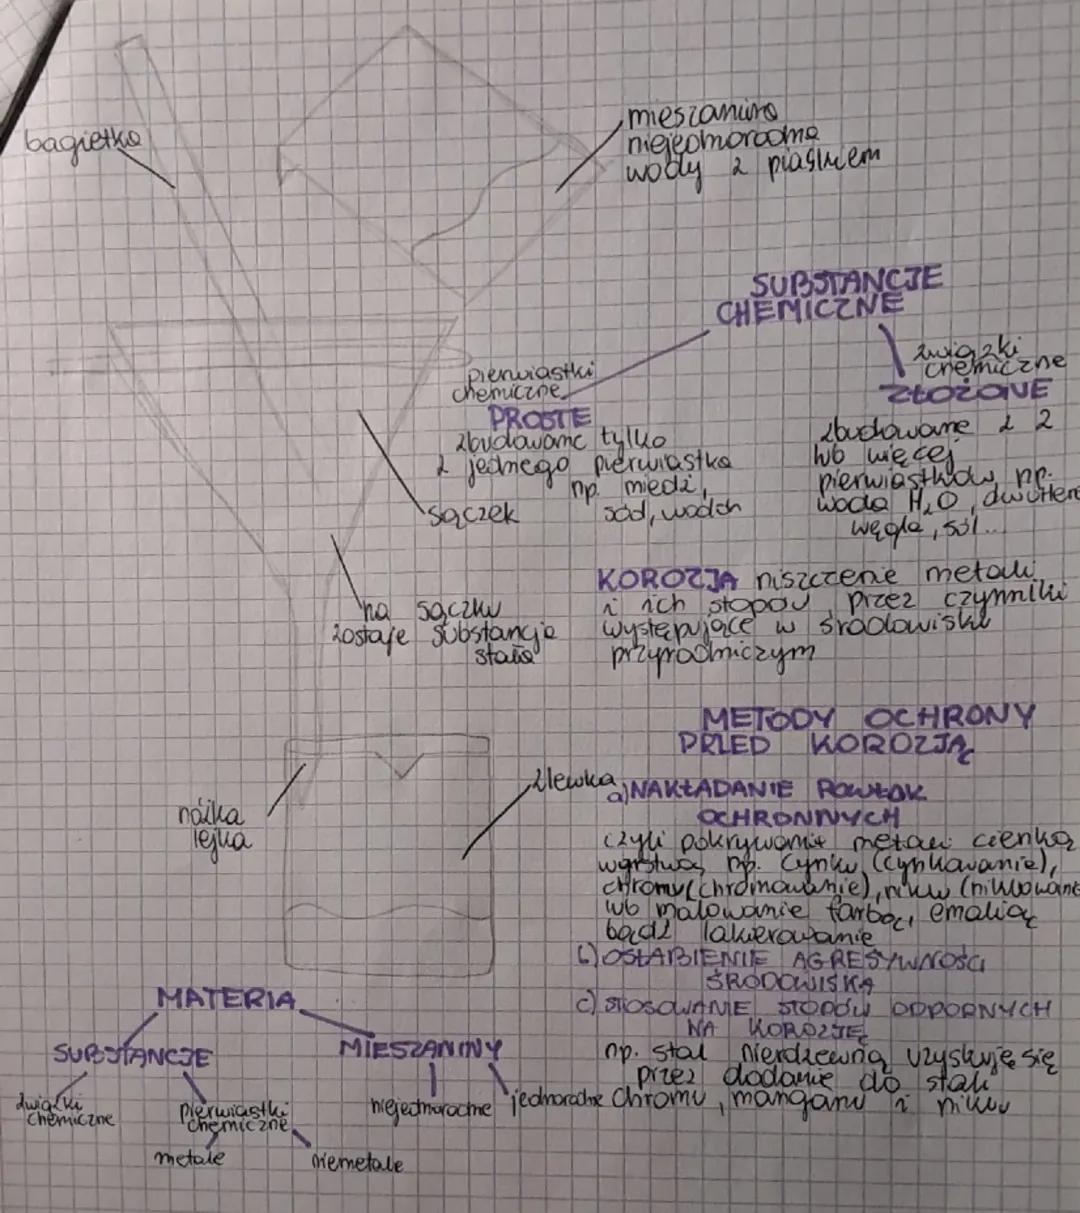 bagietka
mieszanina
niejednorodna
wody z piaskiem
SUBSTANCJE
CHEMICZNE
pierwiastki
chemiczne
PROSTE
zbudowane tylko
z jednego pierwiastka
np. miedź,
sód, wodór
związki
chemiczne
ZŁOŻONE
zbudowane z 2
lub więcej
pierwiastków, np.
woda H₂O, dwutlen
węgla, sól...
sączek
na sączku
zostaje substancja
stała
KOROZJA niszczenie metali
i ich stopów przez czynniki
występujące w środowisku
przyrodniczym
METODY OCHRONY
PRZED KOROZJĄ
zlewka
nóżka
lejka
a) NAKŁADANIE POWŁOK
OCHRONNYCH
czyli pokrywanie metali cienką
warstwą np. cynku (cynkowanie),
chromu (chromowanie), niklu (niklowanie
lub malowanie farbą, emalią
bądź lakierowanie
b) OSŁABIENIE AGRESYWNOŚCI
ŚRODOWISKA
c) STOSOWANIE STOPÓW ODPORNYCH
NA KOROZJĘ
np. stal nierdzewną uzyskuje się
przez dodanie do stali
chromu, manganu i niklu
MATERIA
SUBSTANCJE
MIESZANINY
związki
chemiczne
pierwiastki
chemiczne
niejednorodne
jednorodne
metale
niemetale